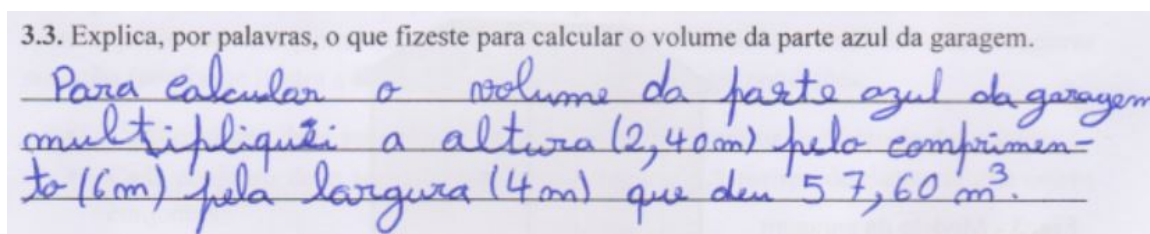 3.3. Explica, por palavras, o que fizeste para calcular o volume da parte azul da garagem.
Para calcular o volume da parte azul da garagem
multipliquei a altura (2,40m) pelo comprimen-
to (6m) pela largura (4m) que deu 57,60 m³.